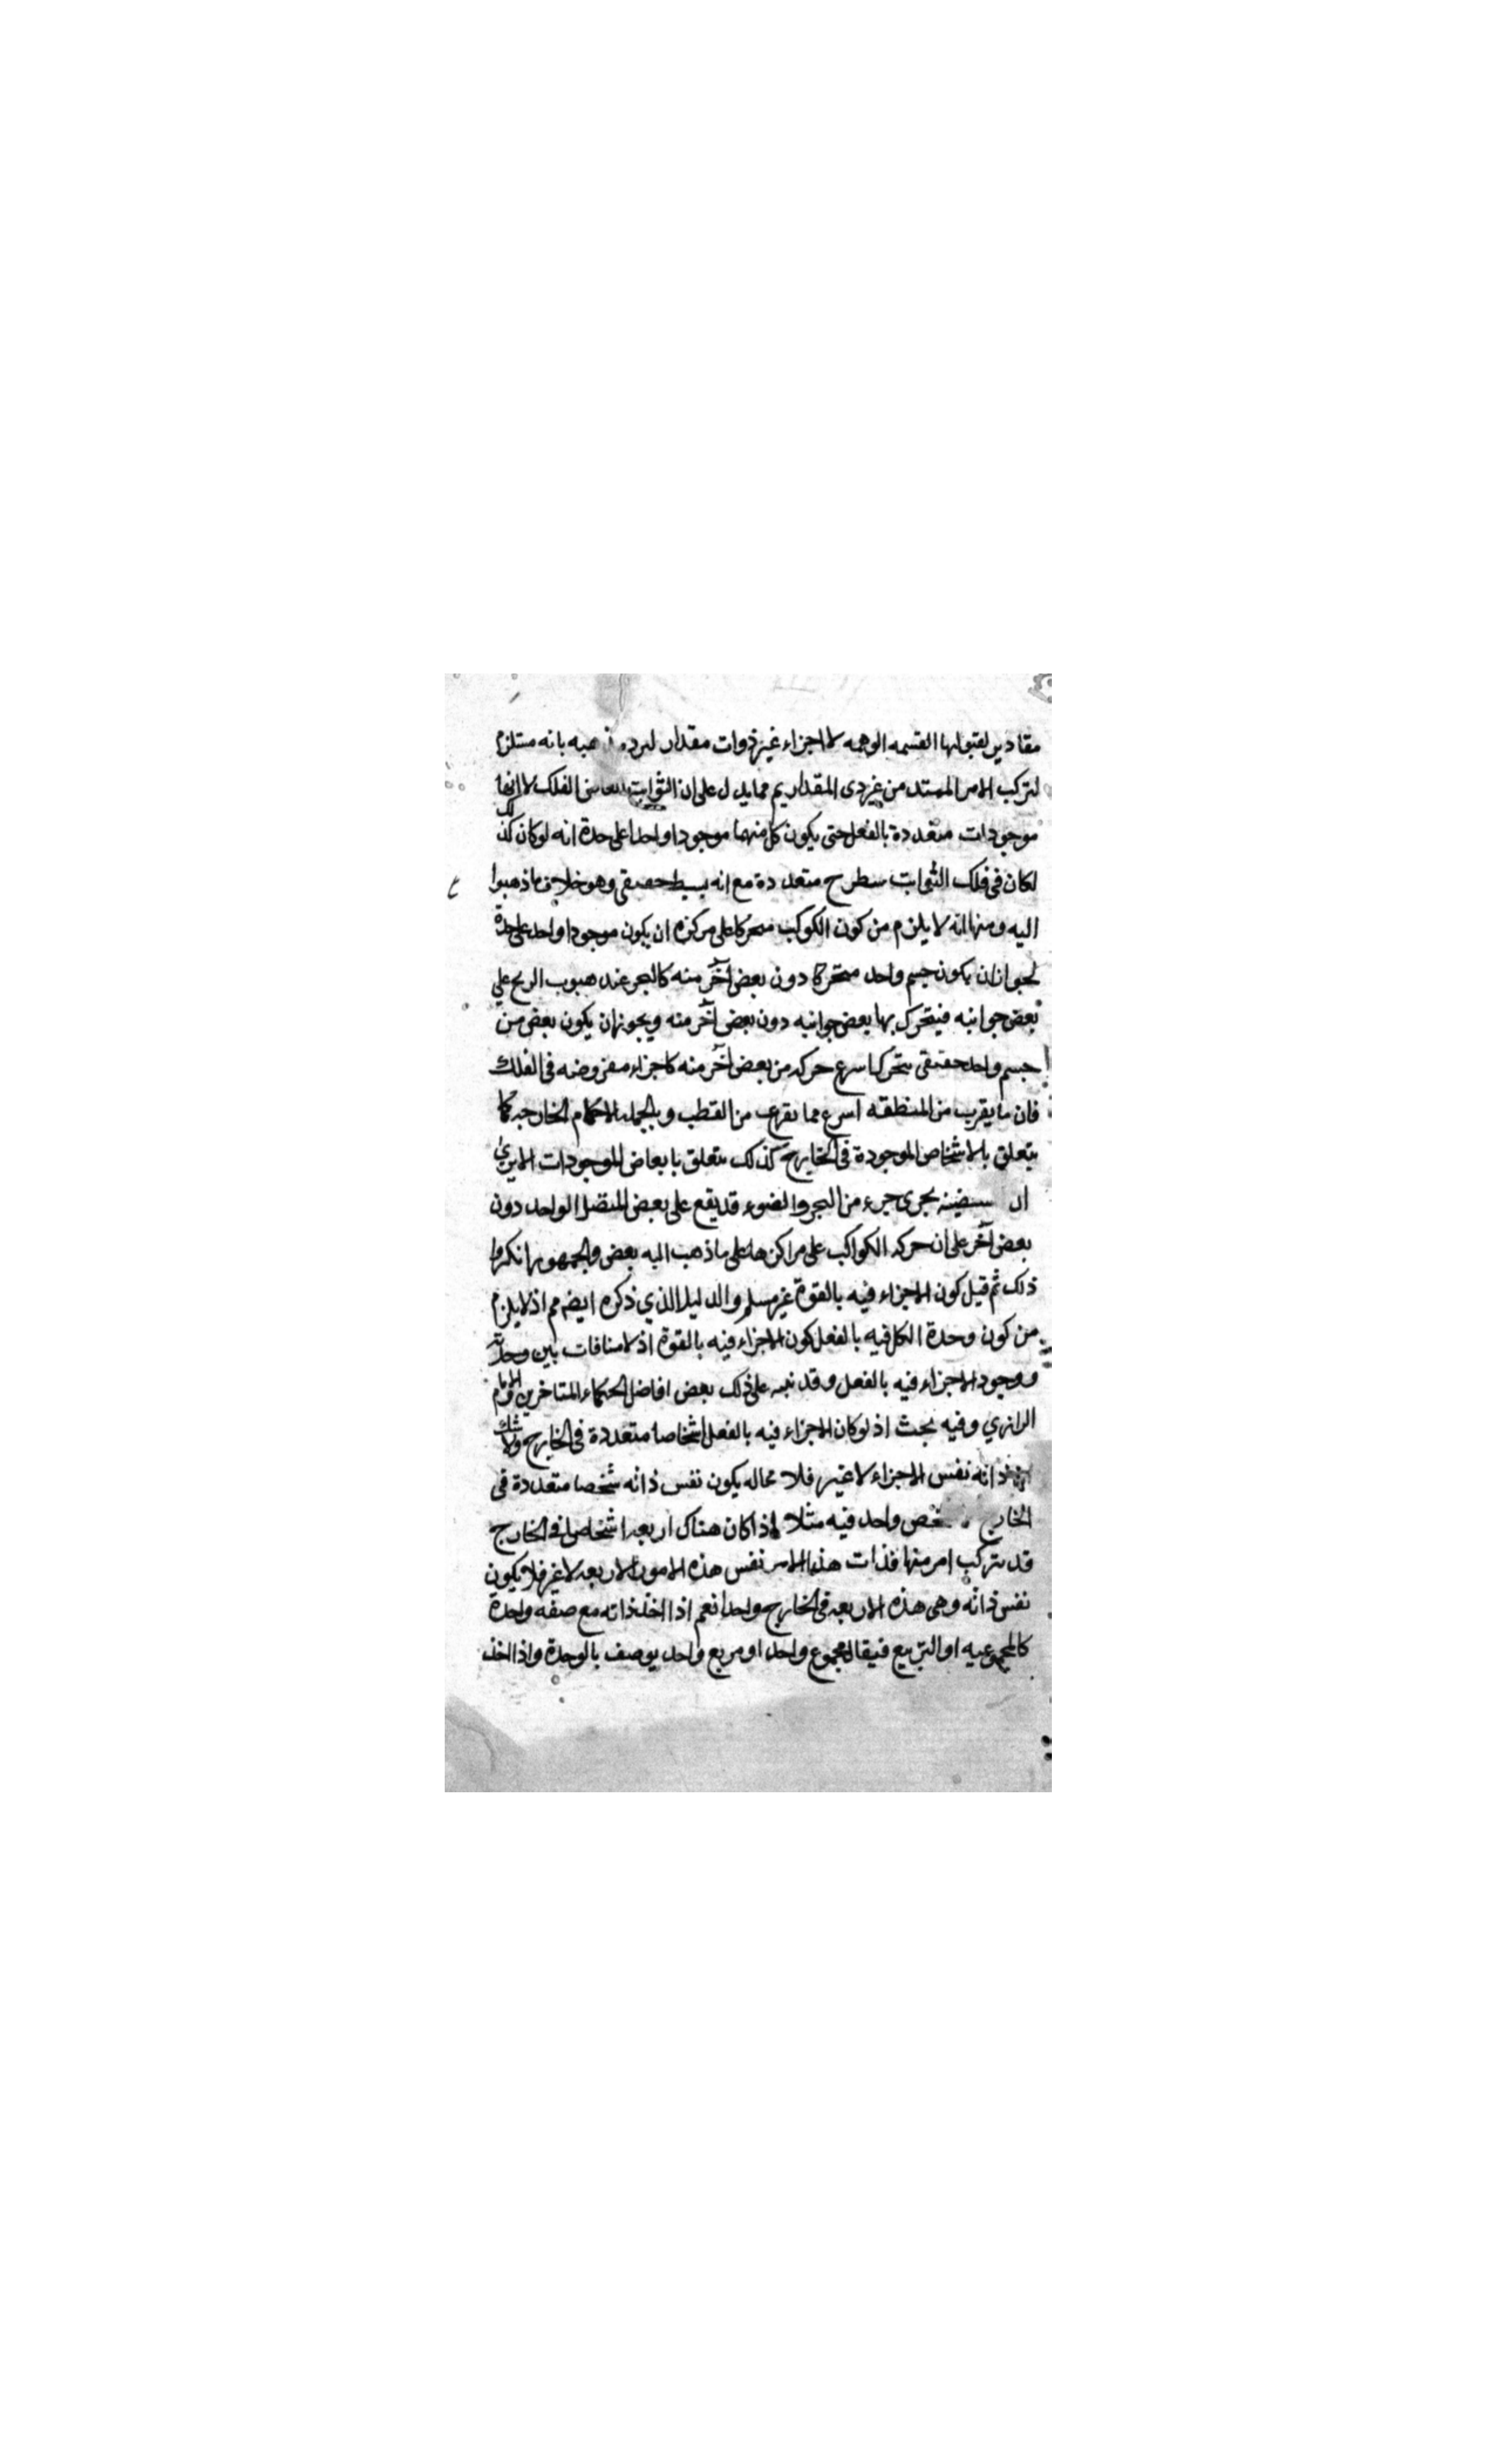 مقادير لقبولها القسمه الوهميه لا اجزاء غير ذوات مقدار ليرد مذهبه بانه مستلزم
لتركب الامر الممتد من غير ذى المقدار يم مما يدل على ان الثوابت ابعاض الفلك لا انها
موجودات متعددة بالفعل حتى يكون كل منهما موجودا واحدا على حدة انه لو كان كذلك
لكان فى فلك الثوابت سطوح متعددة مع انه بسيط حقيقى وهو خلاف ما ذهبوا
اليه ومنها انه لا يلزم من كون الكوكب متحركا على مركزه ان يكون موجودا واحد على حدة
لجواز ان يكون جسم واحد متحركا دون بعض آخر منه كالبحر عند هبوب الريح على
بعض جوانبه فيتحرك بها بعض جوانبه دون بعض آخر منه ويجوز ان يكون بعض من
جسم واحد حقيقى يتحرك اسرع حركه من بعض آخر منه كاجزاء مفروضه فى الفلك
فان ما يقرب من المنطقه اسرع مما يقرب من القطب وبالجمله الاحكام الخارجيه كما
يتعلق بالاشخاص الموجودة فى الخارج كذلك يتعلق بابعاض الموجودات الا يرى
ان سفينه يجرى جزء من البحر والضوء قد يقع على بعض المتصل الواحد دون
بعض آخر على ان حركه الكواكب على مراكزها على ما ذهب اليه بعض والجمهور انكروا
ذلك ثم قيل كون الاجزاء فيه بالقوة غير مسلم والدليل الذي ذكره ايضم مم اذ لا يلزم
من كون وحدة الكل فيه بالفعل كون الاجزاء فيه بالقوة اذ لا منافات بين وحدته
ووجود الاجزاء فيه بالفعل وقد نبه على ذلك بعض افاضل الحكماء المتاخرين والامام
الرازي وفيه بحث اذ لو كان الاجزاء فيه بالفعل اشخاصا متعددة فى الخارج ولا شك
ان ذاته نفس الاجزاء لا غير فلا محاله يكون نفس ذاته شخصا متعددة فى
الخارج شخص واحد فيه مثلا اذا كان هناك اربعه اشخاص فى الخارج
قد يتركب امر منها فذات هذا الامر نفس هذه الامور الاربعه لا غير فلا يكون
نفس ذاته وهى هذه الاربعه فى الخارج واحدا نعم اذا اخذ ذاته مع صفه واحدة
كالمجموعيه او التربيع فيقال مجموع واحد او مربع واحد يوصف بالوحدة واذا اخذ